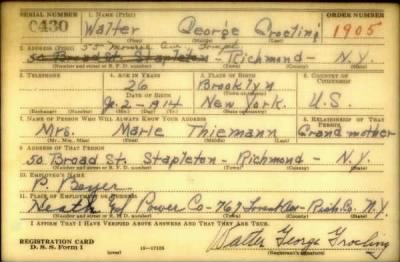 SERIAL NUMBER 1. NAME (Print) ORDER NUMBER
C430 Walter George Groeling 1905
(First) (Middle) (Last)
2. ADDRESS (Print)
55 Ave
50 Broad St. Stapleton - Richmond - N.Y.
(Number and street or R. F. D. number) (Town) (County) (State)
3. TELEPHONE 4. AGE IN YEARS 5. PLACE OF BIRTH 6. COUNTRY OF CITIZENSHIP
26 Brooklyn
DATE OF BIRTH (Town or county)
2-1914 New York. U.S.
(Exchange) (Number) (Mo.) (Day) (Yr.) (State or country)
7. NAME OF PERSON WHO WILL ALWAYS KNOW YOUR ADDRESS 8. RELATIONSHIP OF THAT PERSON
Mrs. Marie Thiemann Grandmother
(Mr., Mrs., Miss) (First) (Middle) (Last)
9. ADDRESS OF THAT PERSON
50 Broad St. Stapleton - Richmond - N.Y.
(Number and street or R. F. D. number) (Town) (County) (State)
10. EMPLOYER'S NAME
P.
11. PLACE OF EMPLOYMENT OR BUSINESS
Power Co - Rich. Co. N.Y.
(Number and street or R. F. D. number) (Town) (County) (State)
I AFFIRM THAT I HAVE VERIFIED ABOVE ANSWERS AND THAT THEY ARE TRUE.
REGISTRATION CARD
D. S. S. Form 1 16-17105 (over) Walter George Groeling
(Registrant's signature)